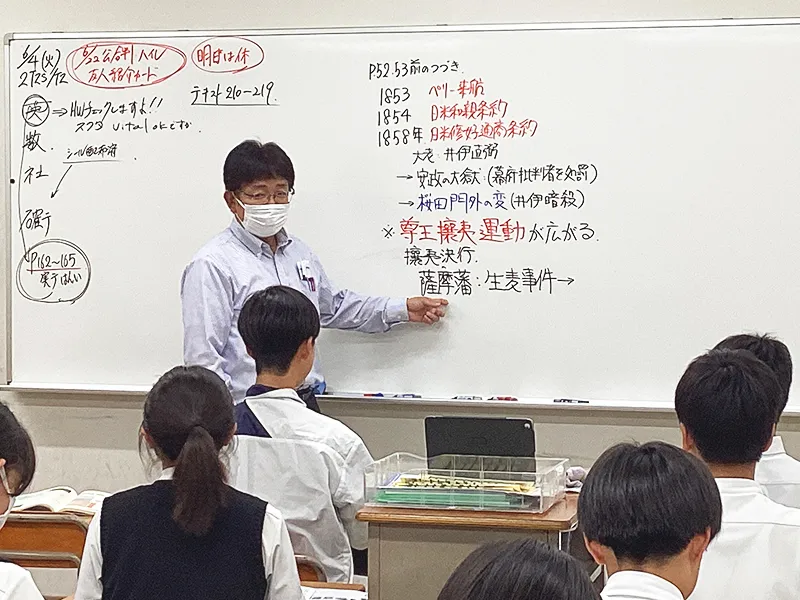 6/4(火)
2125/12
6/22公会判ハイレ
友人紹介カード
明日は休
テキスト210-219
英⇒HWチェックしますよ!!
スクラ vital okですか
数
シール配布済
社
理テ
P162~165
実テはんい
P52.53前のつづき
1853 ペリー来航
1854 日米和親条約
1858年 日米修好通商条約
大老 井伊直弼
→安政の大獄:(幕府批判者を処罰)
→桜田門外の変(井伊暗殺)
※尊王攘夷運動が広がる.
攘夷決行.
薩摩藩:生麦事件→